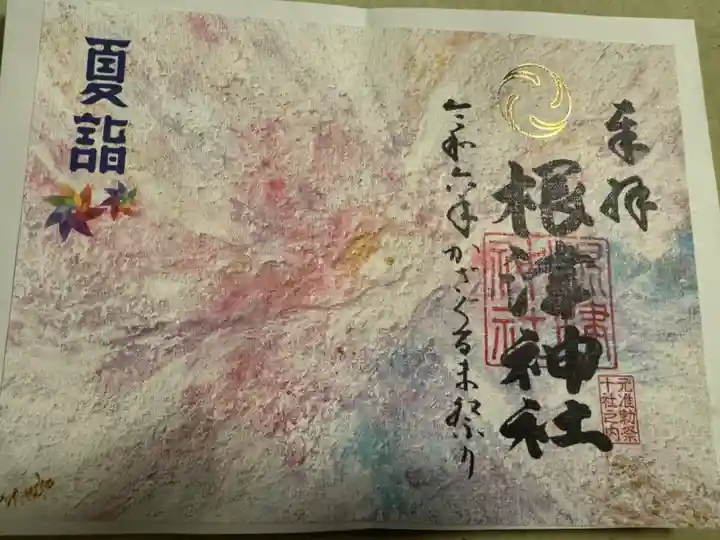 奉拝
根津神社
元准勅祭
十社之内
令和六年かざぐるま祭り
夏詣